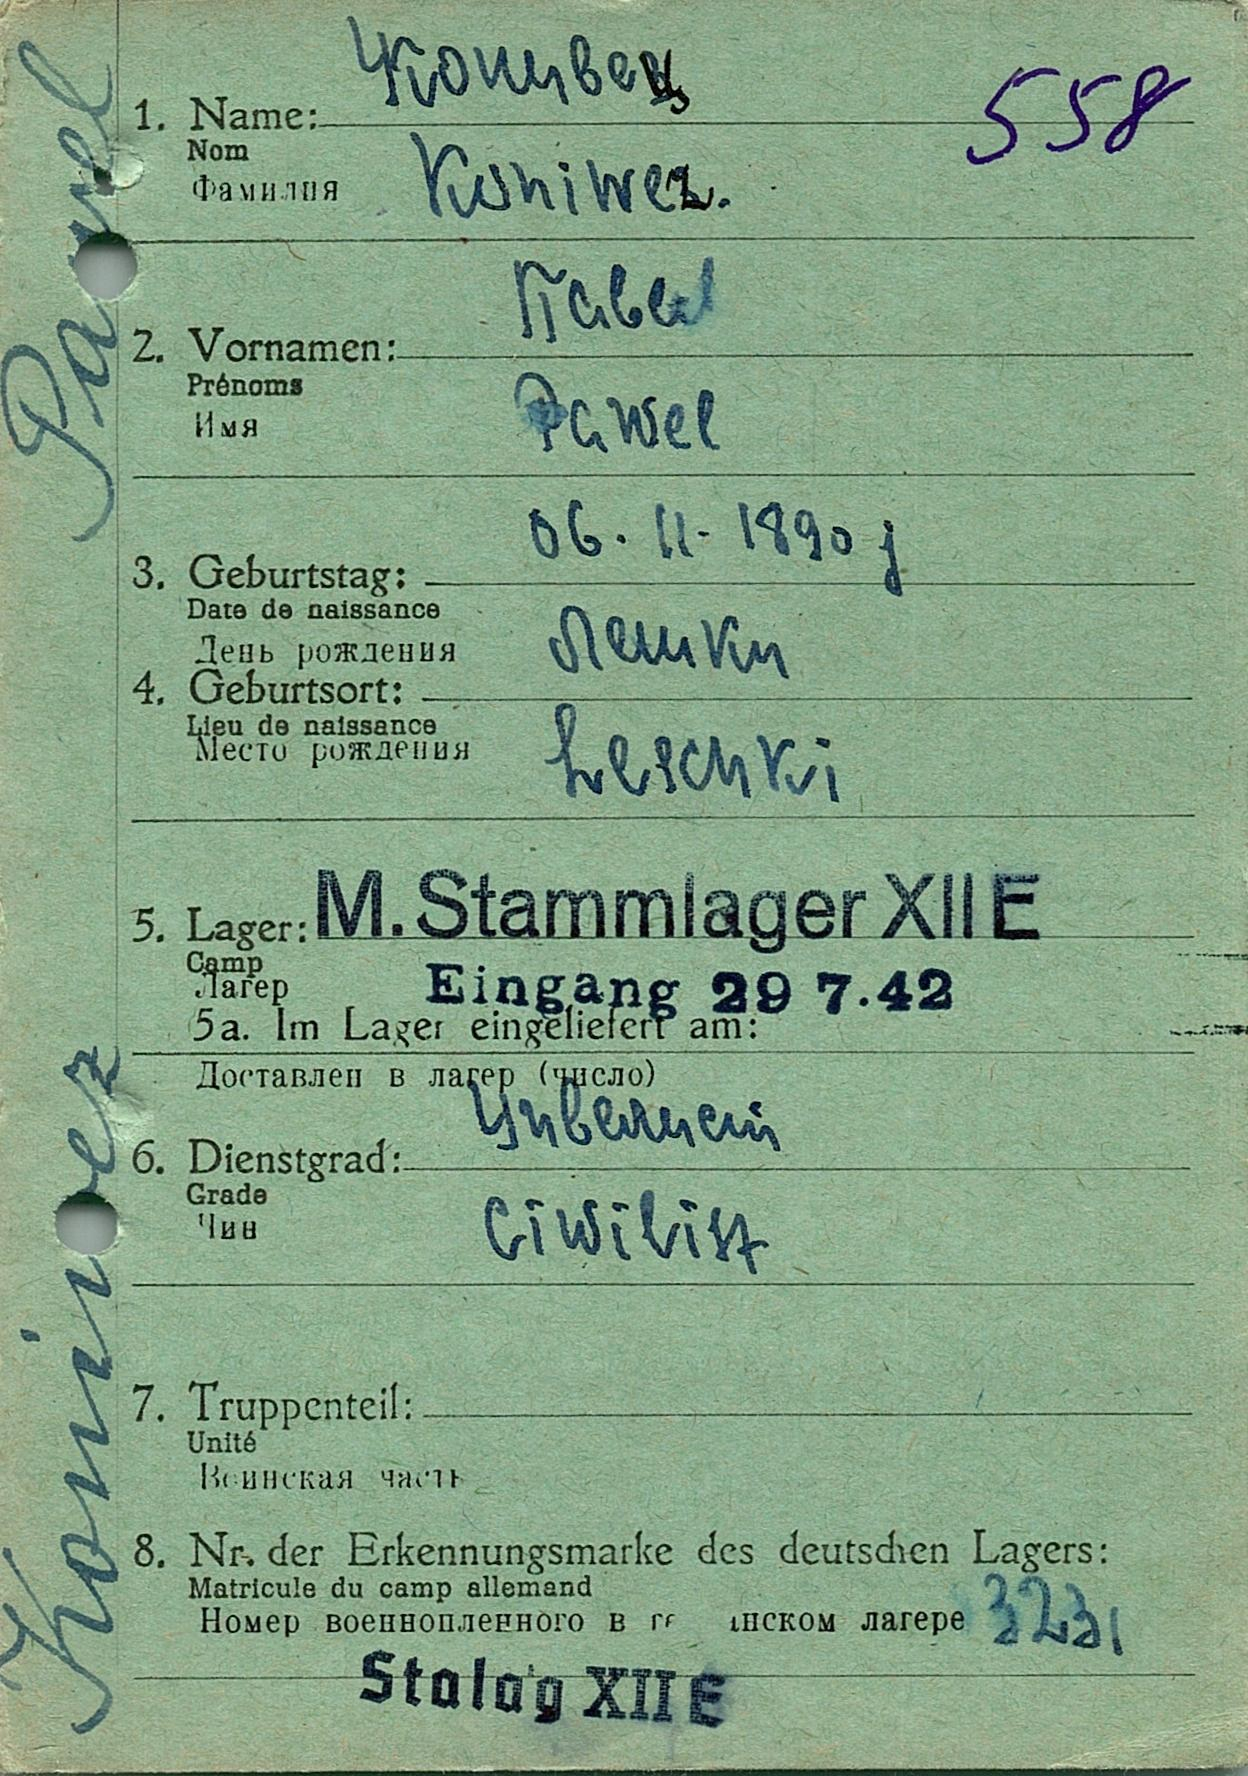 Конивец
558
1. Name:
Nom
Фамилия
Koniwez.
Павел
2. Vornamen:
Prénoms
Имя
Pawel
06. 11. 1890 j
3. Geburtstag:
Date de naissance
День рождения
Лешки
4. Geburtsort:
Lieu de naissance
Место рождения
Leschki
5. Lager: M. Stammlager XII E
Camp
Лагер
Eingang 29 7.42
5a. Im Lager eingeliefert am:
Доставлен в лагер (число)
6. Dienstgrad:
Grade
Чин
Ciwilist
7. Truppenteil:
Unité
Воинская часть
8. Nr. der Erkennungsmarke des deutschen Lagers:
Matricule du camp allemand
Номер военнопленного в инском лагере 3231
Stalag XII E
Koniwez Pawel